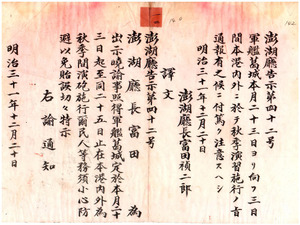 澎湖廳告示第四十二号
軍艦葛城本月二十三日ヨリ向フ三日
間本港内外ニ於テ秋季演習施行ノ旨
通報有之候ニ付篤ク注意スヘシ
明治三十一年十二月二十日
澎湖廳長冨田禎二郎
譯文
澎湖廳告示第四十二号
澎湖廳長冨田 為
出示曉諭事照得軍艦葛城定於本月二十
三日起至同二十五日止在本港内外為
秋季間演砲施行爾民人等務須小心防
避以免貽誤切々特示
右諭通知
明治三十一年十二月二十日